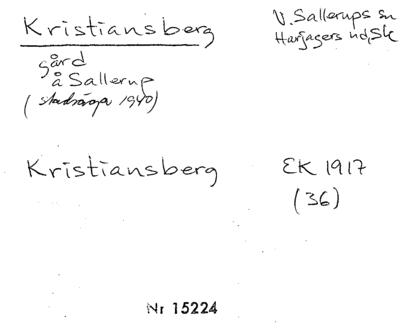 Kristiansberg
V. Sallerups sn
Harjagers hd, Sk
gård
å Sallerup
1940)
Kristiansberg
EK 1917
(36)
Nr 15224